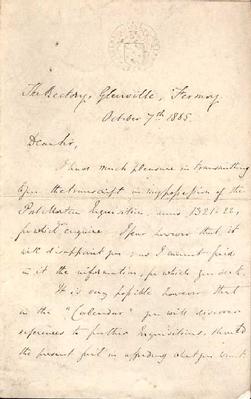 The Rectory, Glenville, Fermoy.
October 7th 1885.
Dear Sir,
I have much pleasure in transmitting
you the transcript in my possession of the
Post Mortem Inquisition, anno 1321-22,
for which enquire. I fear however that it
will disappoint you as I cannot find
in it the information, for which you seek.
It is very possible however that
in the "Calendar" you will discover
references to further Inquisitions, should
the present fail in affording what you want.